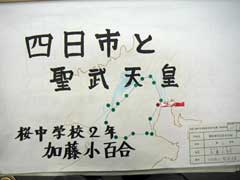 四日市と
聖武天皇
桜中学校2年
加藤小百合